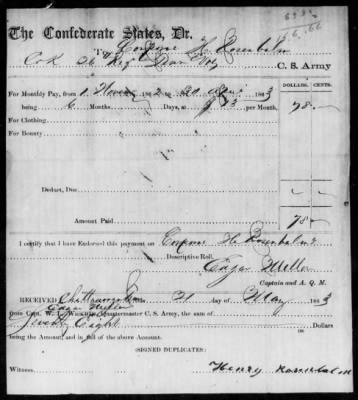 The Confederate States, Dr.
To Corpora H. Rosenbalm
Co K 26 Regt Tenn Vols C. S. Army
DOLLARS. CENTS.
For Monthly Pay, from 1 1862 to 30 1863
being 6 Months Days, at $13 per Month, 78
For Clothing,
For Bounty,
Deduct, Due
Amount Paid 78
I certify that I have Endorsed this payment on Corpora H. Rosenbalm's
Descriptive Roll.
Edgar Miller
Captain and A. Q. M.
RECEIVED Chattanooga 21 day of May 1863
Edgar Miller
from Capt. Quartermaster C. S. Army, the sum of
Seventy Eight Dollars
being the Amount, and in full of the above Account.
(SIGNED DUPLICATES.)
Witness, Henry Rosenbalm